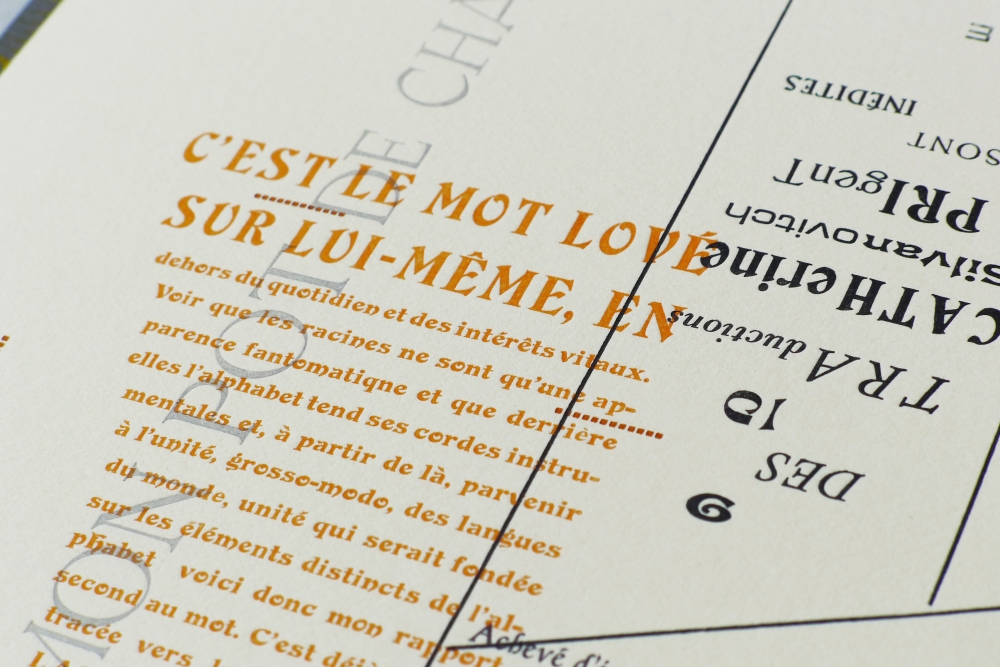 C'EST LE MOT LOVÉ
SUR LUI-MÊME, EN
dehors du quotidien et des intérêts vitaux.
Voir que les racines ne sont qu'une ap-
parence fantomatiqne et que derrière
elles l'alphabet tend ses cordes instru-
mentales et, à partir de là, parvenir
à l'unité, grosso-modo, des langues
du monde, unité qui serait fondée
sur les éléments distincts de l'al-
phabet voici donc mon rapport
second au mot. C'est déjà
tracée vers
MON POT DE CHA
Achevé
9
DES
15
TRAductions
CATHerine
silvanovitch
PRIgenT
SONT
INÉDITES